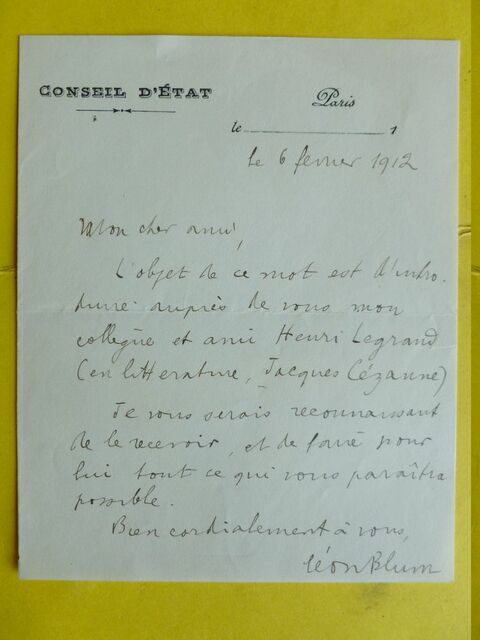 CONSEIL D'ÉTAT
Paris
le 1
le 6 fevrier 1912
Mon cher ami,
L'objet de ce mot est d'intro-
duire auprès de vous mon
collègue et ami Henri Legrand
(en litterature, Jacques Cézanne)
Je vous serais reconnaissant
de le recevoir, et de faire pour
lui tout ce qui vous paraîtra
possible.
Bien cordialement à vous,
Léon Blum